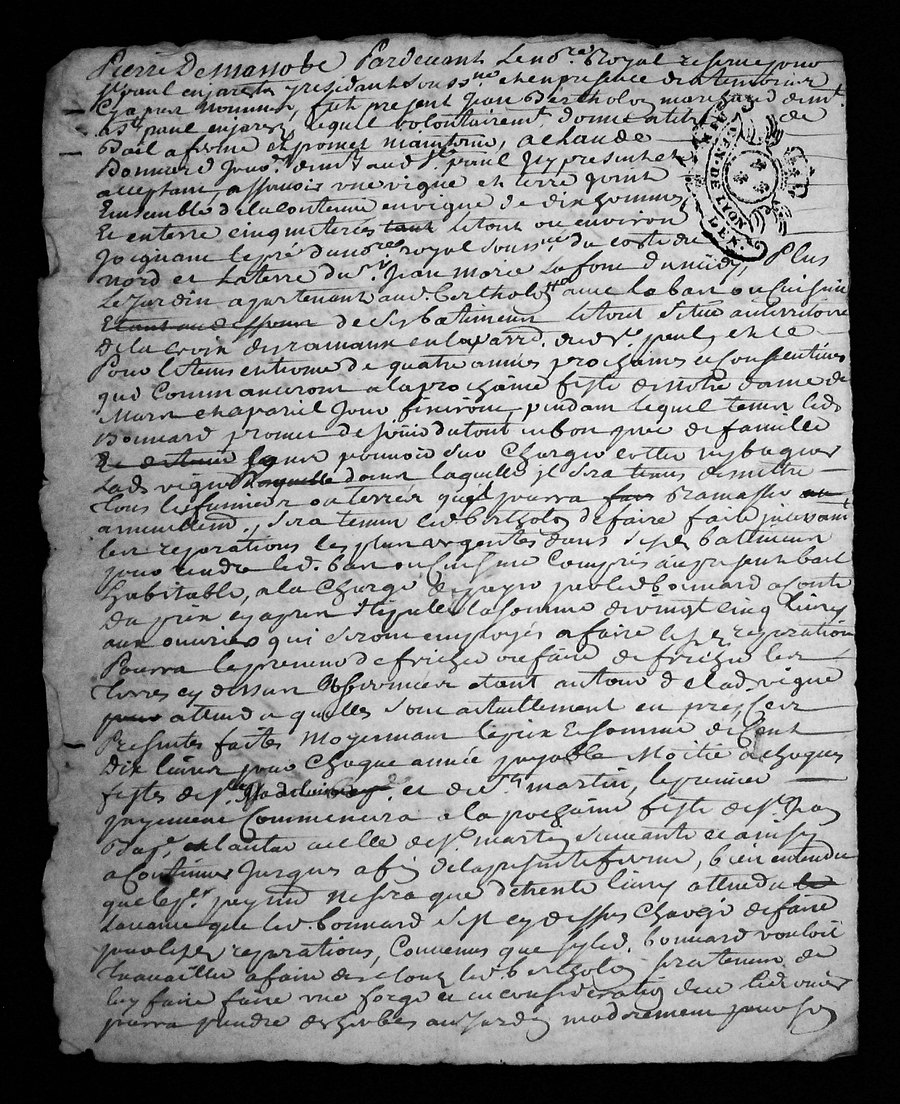 Pierre Demasso be Pardevant Le no.re Royal reservé pour
St paul en jarest y résidant soussné et en presence des temoins
Cy apres nommés, fut present Jean Bertholot marchand dem.t
a St paul en jarest lequel volontairemt donne a titre de
Bail a ferme et promet maintenir, a Claude
Bonnard demt aud St paul icy present et
acceptant, a sçavoir une vigne et terre joint
Ensemble de la contenue en vigne de dix hommes
Et en terre cinq meterées tout le tout ou environ
Joignant le pré dud no.re royal soussné du costé de
nord et la terre du Sr Jean marie La font du midy, Plus
Le Jardin apartenant aud. bertholot avec la bas ou Cuisine
de ses batiments le tout situé au territoire
De la Croix en la parr. dud St. paul, et ce
Pour le tems et terme de quatre années prochaines et Consecutives
qui Commanceront a la prochaine feste de notre dame de
Mars et a pareil Jour finiront, pendant lequel temps led.
Bonnard promet de jouir du tout en bon pere de famille
sans pouvoir sur Charger cotter ny
Lad. vigne laquelle dans laquelle il sera tenu de mettre
Tous les fumiers ou terres quil pourra ramasser
annuellemt., sera tenu led bertholot de faire faire incessamt
les reparations les plus urgentes dans sesd. battiments
pour rendre led. bas ou Cuisine Compris au present bail
habitable, a la Charge de payer par led bonnard a conte
Du prix cy apres stipulé la somme de vingt cinq livres
aux ouvriers qui seront employés a faire lesd. reparations
Pourra le preneur defricher ou faire defricher les
Terres cy dessus étant autour de lad. vigne
attendu quelles sont actuellement en
Presentes faites moyennant le prix et somme de Cent
Dix livres pour Chaque année payable Moitié a Chaques
festes de Ste Madelaine et de St martin, le premier
payement Commencera a la prochaine feste de St Jean
Bap.te et lautre a celle de St martin suivante et ainsy
a Continuer Jusques a fin de la presente ferme, bien entendu
que le pr. payemt ne sera que de trente livres attendu
davance que led. bonnard est cy dessus Chargé de faire
pour lesd. reparations, Convenus que sy led. bonnard vouloit
travailler a faire des Cloux led bertholot sera tenu de
luy faire faire une forge et en consideration de ce led. dernier
pourra prendre des herbes au jardin moderement pour son
GEN. DE LYON